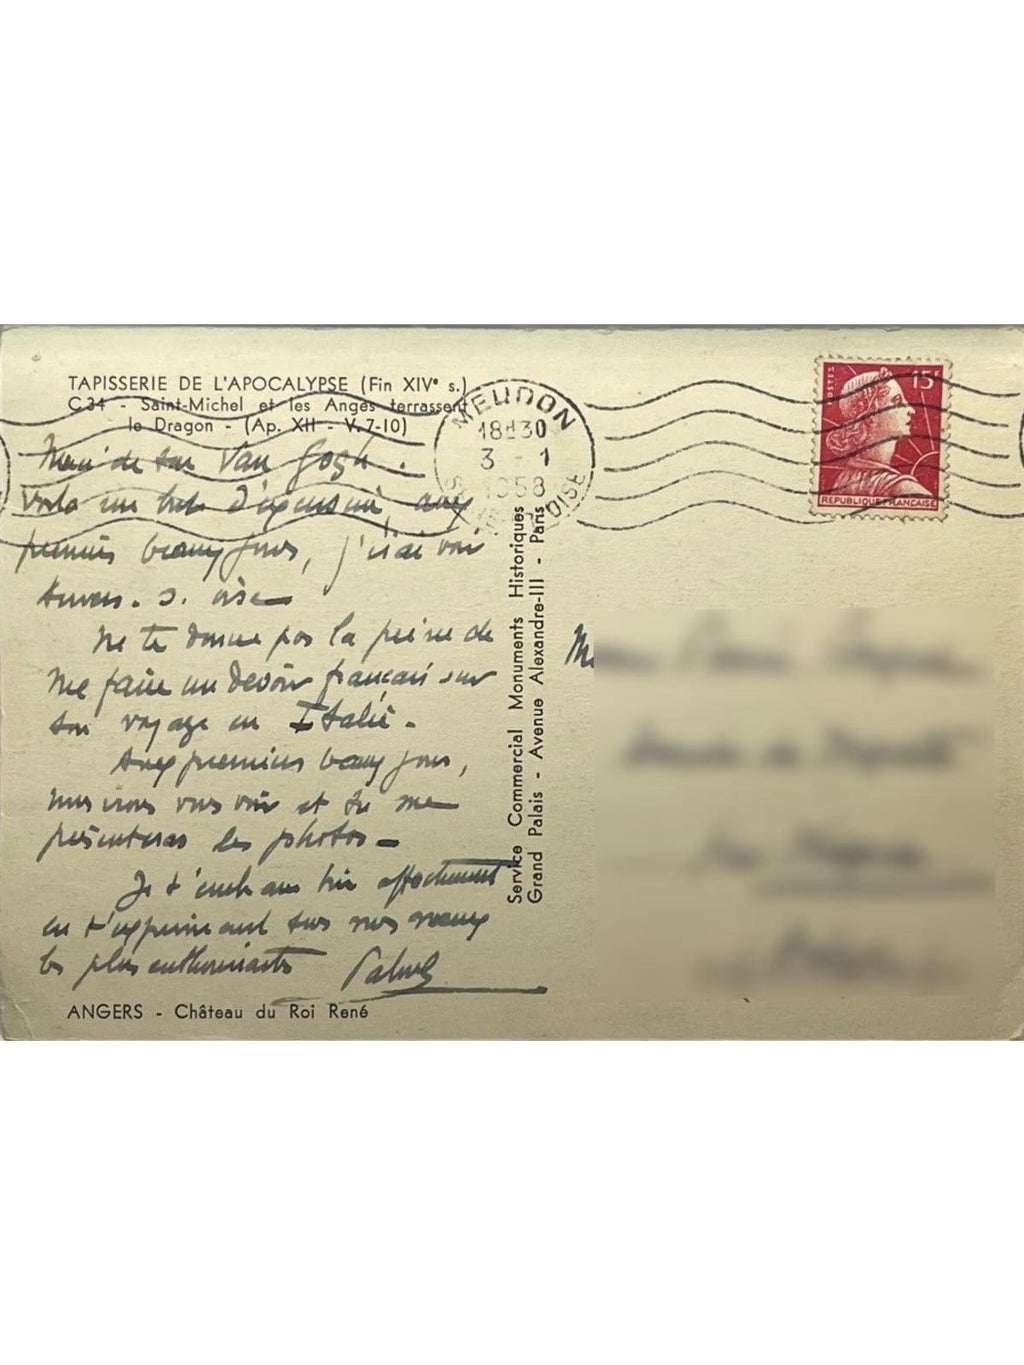 TAPISSERIE DE L'APOCALYPSE (Fin XIVe s.)
C 34 - Saint-Michel et les Anges terrassent
le Dragon - (Ap. XII - V. 7-10)
Merci de ton Van Gogh.
Voilà un but d'excursion, aux
premiers beaux jours, j'irai voir
Auvers. s. oise
Ne te donne pas la peine de
me faire un devoir français sur
ton voyage en Italie.
Aux premiers beaux jours,
nous irons vous voir et tu me
présenteras les photos -
Je t'embrasse très affectueusement
en t'exprimant tous nos voeux
les plus enthousiastes
ANGERS - Château du Roi René
Service Commercial Monuments Historiques
Grand Palais - Avenue Alexandre-III - Paris
MEUDON
18H30
3 - 1
1958
OISE
POSTES
15F
REPUBLIQUE FRANÇAISE